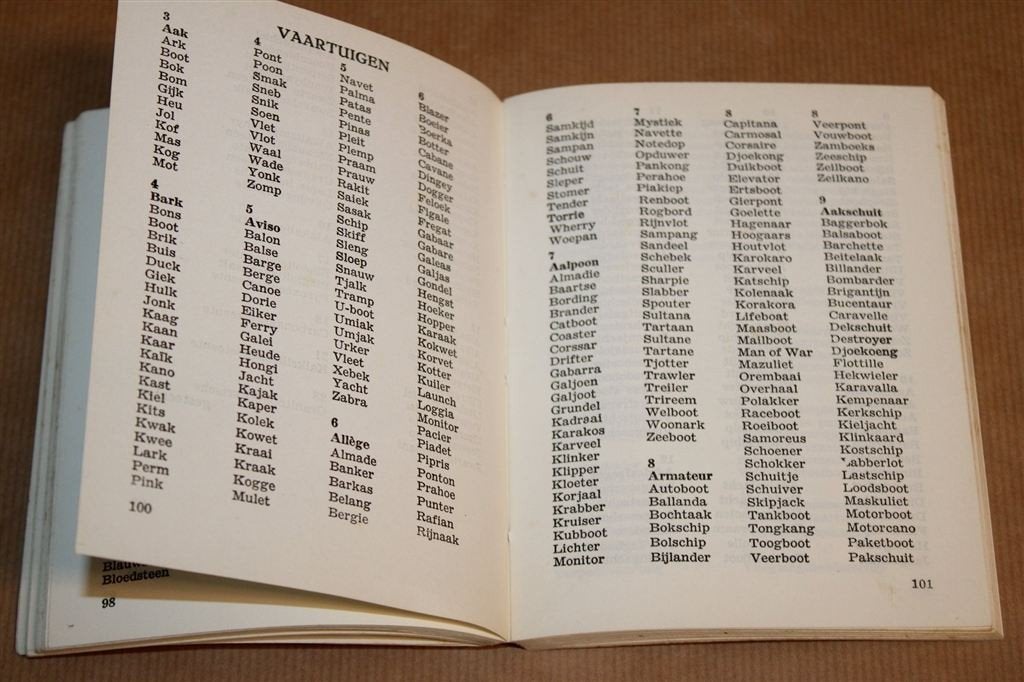 VAARTUIGEN
3
Aak
Ark
Boot
Bok
Bom
Gijk
Heu
Jol
Kof
Mas
Kog
Mot
4
Bark
Bons
Boot
Brik
Buis
Duck
Giek
Hulk
Jonk
Kaag
Kaan
Kaar
Kaik
Kano
Kast
Kiel
Kits
Kwak
Kwee
Lark
Perm
Pink
4
Pont
Poon
Smak
Sneb
Snik
Soen
Vlet
Vlot
Waal
Wade
Yonk
Zomp
5
Aviso
Balon
Balse
Barge
Berge
Canoe
Dorie
Eiker
Ferry
Galei
Heude
Hongi
Jacht
Kajak
Kaper
Kolek
Kowet
Kraai
Kraak
Kogge
Mulet
5
Navet
Palma
Patas
Pente
Pinas
Pleit
Plemp
Praam
Prauw
Rakit
Saiek
Sasak
Schip
Skiff
Sleng
Sloep
Snauw
Tjalk
Tramp
U-boot
Umiak
Umjak
Urker
Vleet
Xebek
Yacht
Zabra
6
Allège
Almade
Banker
Barkas
Belang
Bergie
6
Blazer
Boeier
Boerka
Botter
Cabane
Cavane
Dingey
Dogger
Feloek
Figale
Fregat
Gabaar
Gabare
Galeas
Galjas
Gondel
Hengst
Hoeker
Hopper
Karaak
Kokwet
Korvet
Kotter
Kuiler
Launch
Loggia
Monitor
Pacier
Piadet
Pipris
Ponton
Prahoe
Punter
Rafian
Rijnaak
100
Bloedsteen
98
6
Samkijd
Samkijn
Sampan
Schouw
Schuit
Sleper
Stomer
Tender
Torrie
Wherry
Woepan
7
Aalpoon
Almadie
Baartse
Bording
Brander
Catboot
Coaster
Corssar
Drifter
Gabarra
Galjoen
Galjoot
Grundel
Kadraai
Karakos
Karveel
Klinker
Klipper
Kloeter
Korjaal
Krabber
Kruiser
Kubboot
Lichter
Monitor
7
Mystiek
Navette
Notedop
Opduwer
Pankong
Perahoe
Piakiep
Renboot
Rogbord
Rijnvlot
Sampang
Sandeel
Schebek
Sculler
Sharpie
Slabber
Spouter
Sultana
Tartaan
Sultane
Tartane
Tjotter
Trawler
Treiler
Trireem
Welboot
Woonark
Zeeboot
8
Armateur
Autoboot
Ballanda
Bochtaak
Bokschip
Bolschip
Bijlander
8
Capitana
Carmosal
Corsaire
Djoekong
Duikboot
Elevator
Ertsboot
Gierpont
Goelette
Hagenaar
Hoogaars
Houtvlot
Karokaro
Karveel
Katschip
Kolenaak
Korakora
Lifeboat
Maasboot
Mailboot
Man of War
Mazuliet
Orembaai
Overhaal
Polakker
Raceboot
Roeiboot
Samoreus
Schoener
Schokker
Schuitje
Schuiver
Skipjack
Tankboot
Tongkang
Toogboot
Veerboot
8
Veerpont
Vouwboot
Zamboeks
Zeeschip
Zeilboot
Zeilkano
9
Aakschuit
Baggerbok
Balsaboot
Barchette
Beitelaak
Billander
Bombarder
Brigantijn
Bucentaur
Caravelle
Dekschuit
Destroyer
Djoekoeng
Flottille
Hekwieler
Karavalla
Kempenaar
Kerkschip
Kieljacht
Klinkaard
Kostschip
Labberlot
Lastschip
Loodsboot
Maskuliet
Motorboot
Motorcano
Paketboot
Pakschuit
101